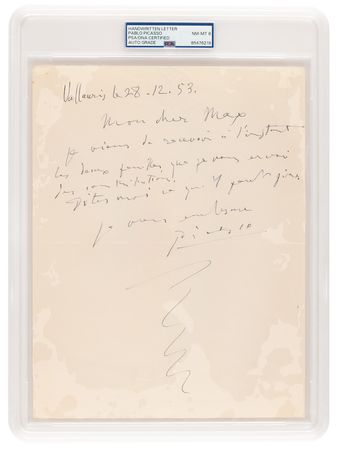 HANDWRITTEN LETTER
PABLO PICASSO
PSA/DNA CERTIFIED
AUTO GRADE
PSA
NM-MT 8
85476218
Vallauris le 28.12.53.
Mon cher Max
je viens de recevoir à l'instant
les deux feuilles que je vous envoi
des
Dites moi ce que
je vous embrasse
Picasso